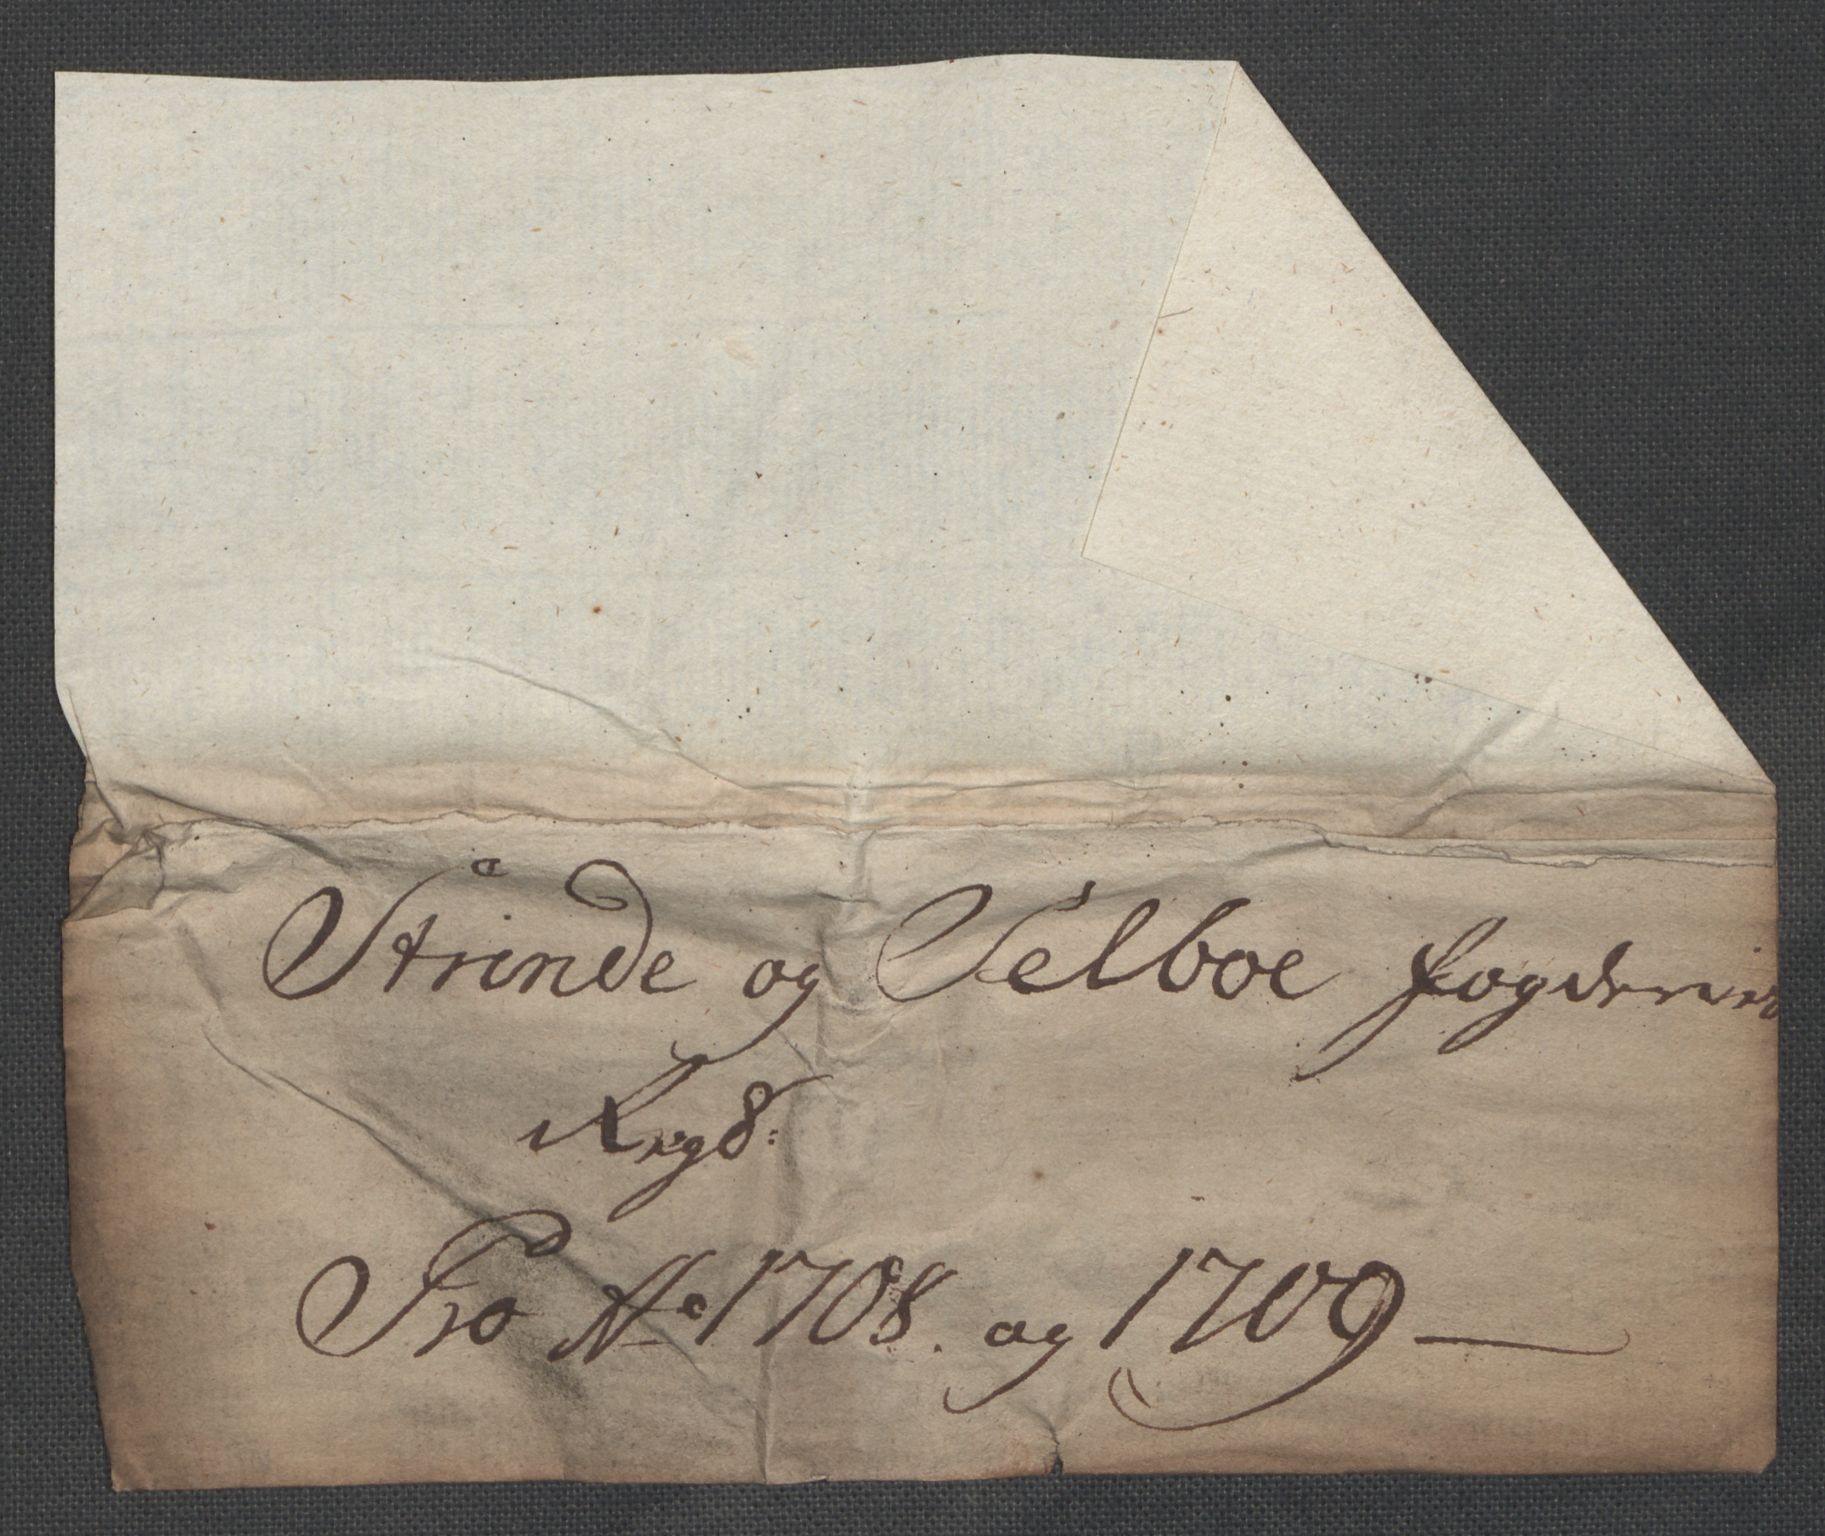 Strinde og Selboe fogderier
Regs:
Pro Ao 1708. og 1709